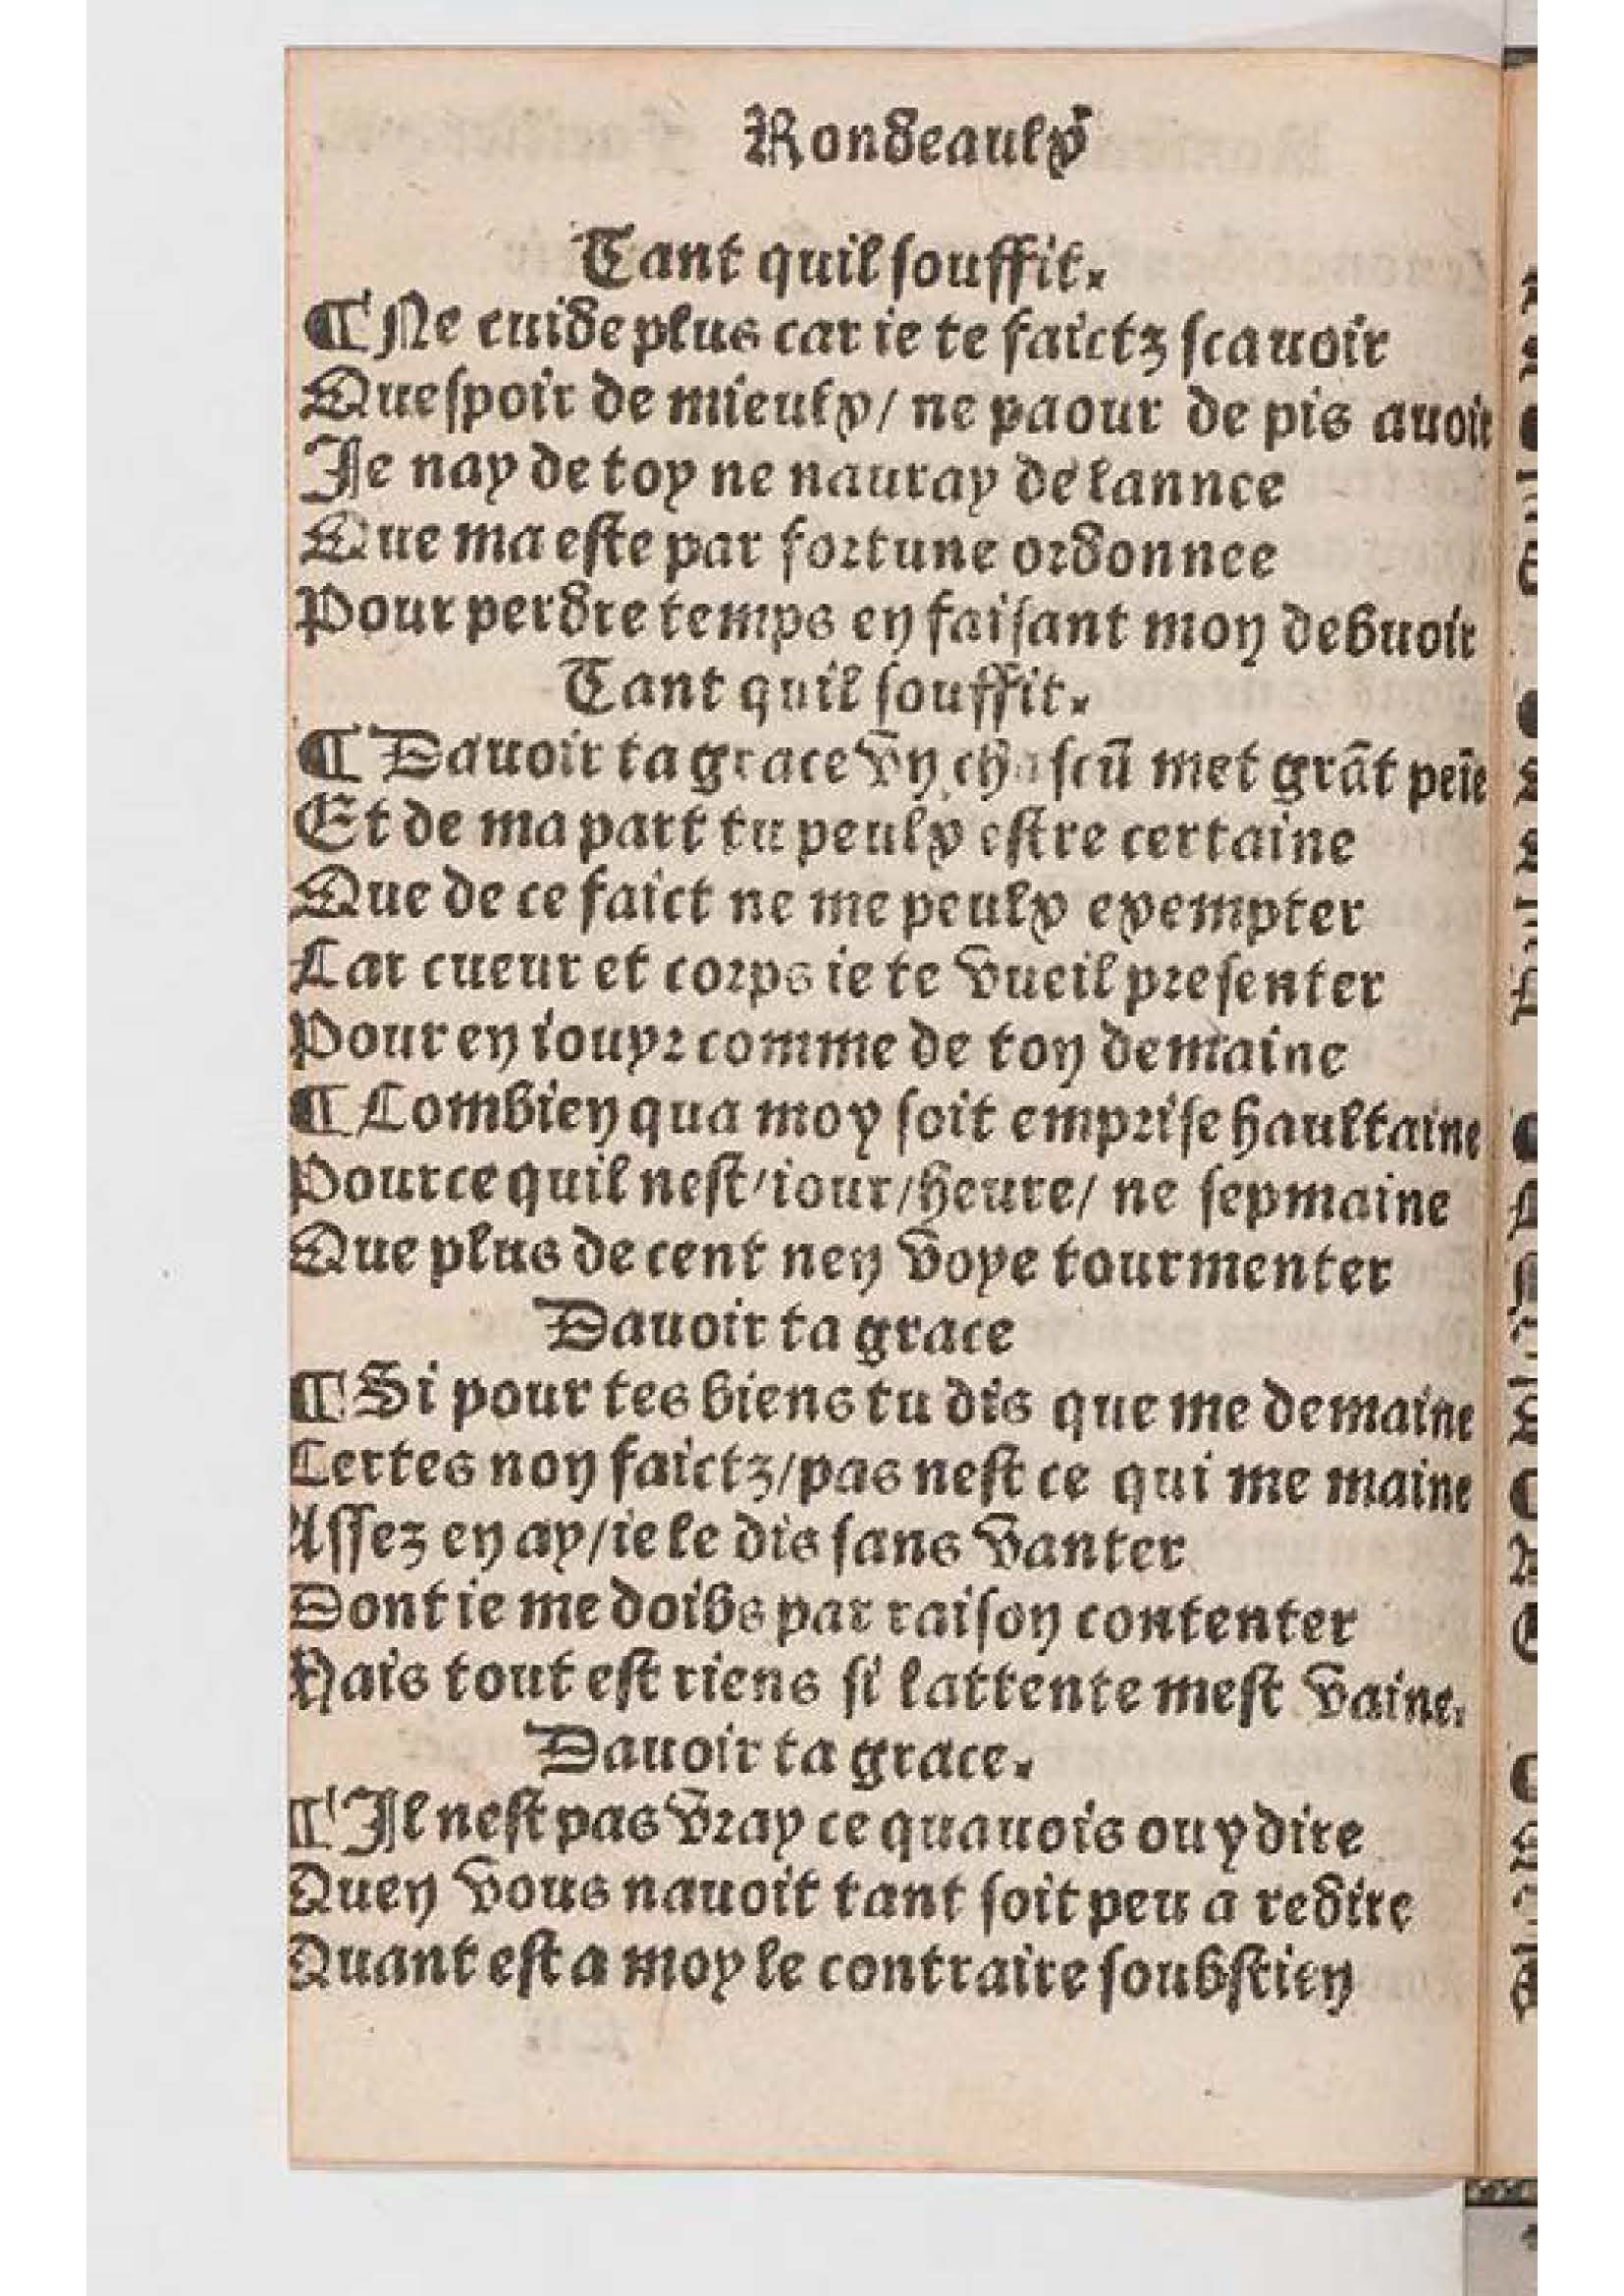 Rondeaulx
Tant quil souffit.
¶ Ne cuide plus car ie te faictz scauoir
Quespoir de mieulx / ne paour de pis auoir
Je nay de toy ne nauray de lannee
Que ma este par fortune ordonnee
Pour perdre temps en faisant mon debuoir
Tant quil souffit.
¶ Dauoir ta grace vng chascū met grāt peīe
Et de ma part tu peulx estre certaine
Que de ce faict ne me peulx exempter
Car cueur et corps ie te vueil presenter
Pour en iouyr comme de ton demaine
¶ Combien qua moy soit emprise haultaine
Pource quil nest / iour / heure / ne sepmaine
Que plus de cent nen voye tourmenter
Dauoir ta grace
¶ Si pour tes biens tu dis que me demaine
Certes non faictz / pas nest ce qui me maine
Assez en ay / ie le dis sans vanter
Dont ie me doibs par raison contenter
Mais tout est riens si lattente mest vaine.
Dauoir ta grace.
¶ Il nest pas vray ce quauois ouy dire
Quen vous nauoit tant soit peu a redire
Quant est a moy le contraire soubstien